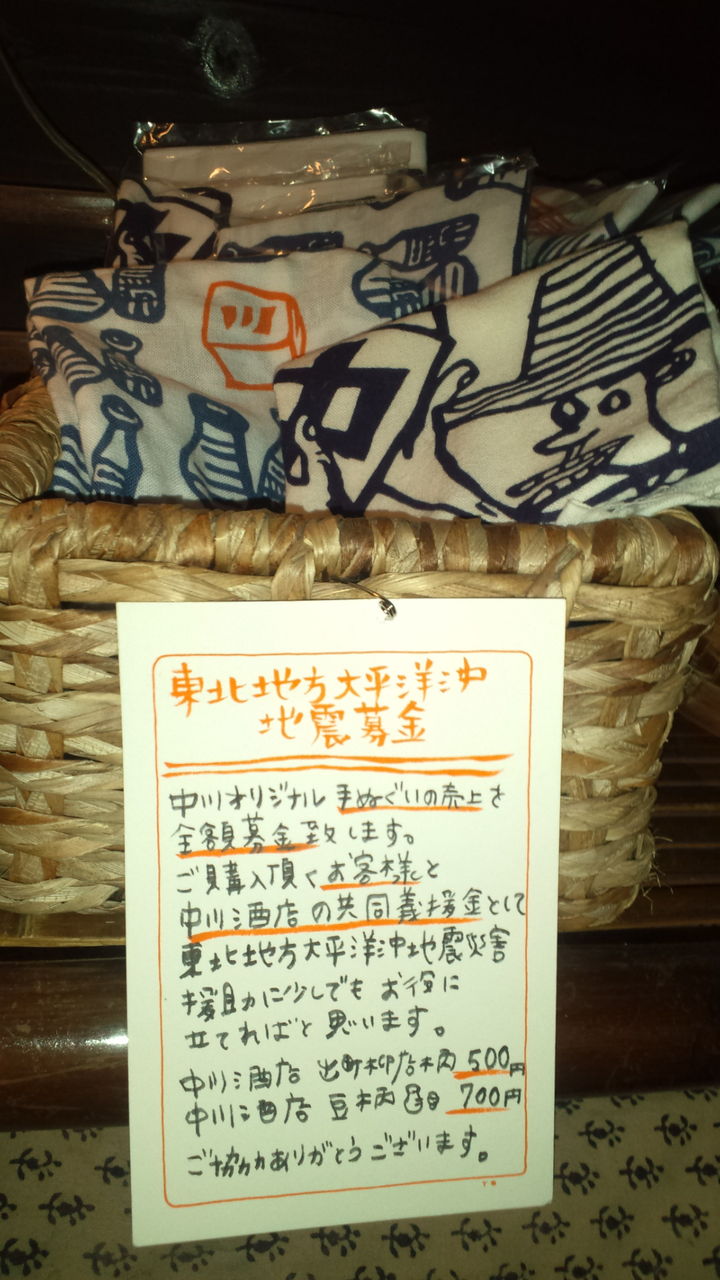 東北地方太平洋沖
地震募金
中川オリジナル手ぬぐいの売上を
全額募金致します。
ご購入頂くお客様と
中川酒店の共同義援金として
東北地方太平洋沖地震災害
援助に少しでもお役に
立てればと思います。
中川酒店 出町柳店柄 500円
中川酒店 豆柄 700円
ご協力ありがとうございます。